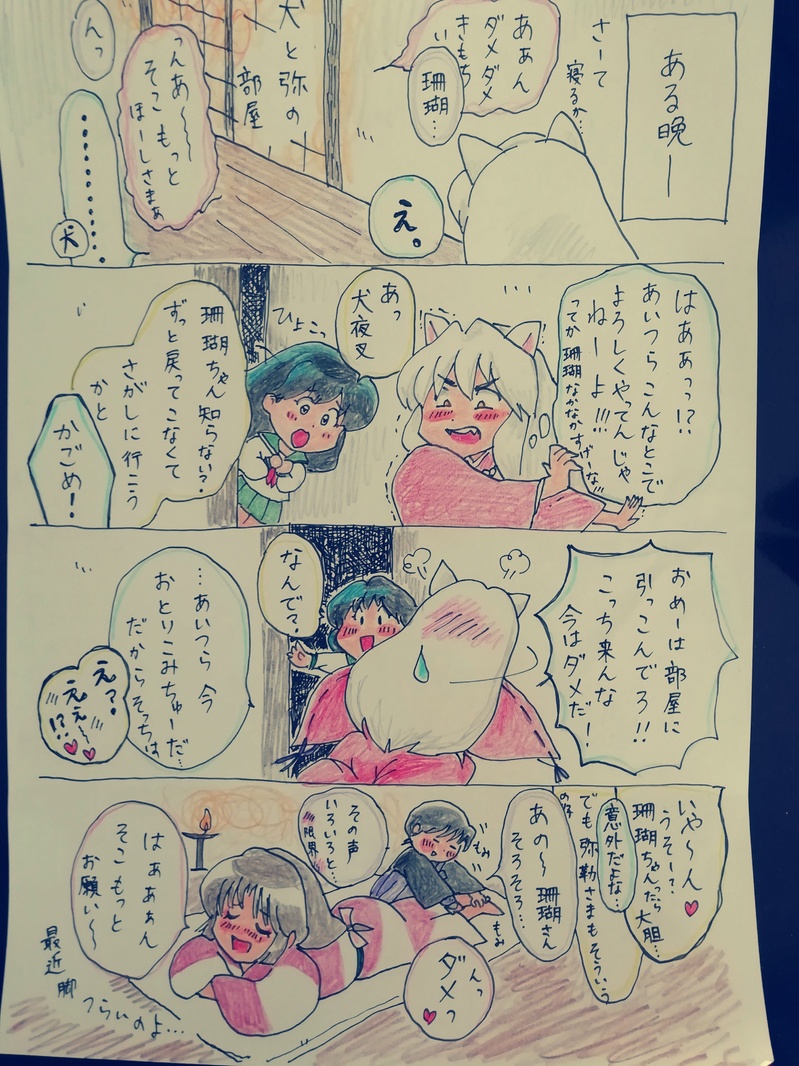 ある晩ー
さーて
寝るか…
あぁん
ダメダメ
きもち
い
珊瑚…
え。
犬と弥の
部屋
っんあ〜〜〜
そこもっと
ほーしさまぁ
んっ
………
犬
はああっっ!?
あいつらこんなとこで
よろしくやってんじゃ
ねーよ!!!
ってか珊瑚なかなかすげーな!!
あっ
犬夜叉
ひょこっ
珊瑚ちゃん知らない?
ずっと戻ってこなくて
さがしに行こう
かと
かごめ!
おめーは部屋に
引っこんでろ!!
こっち来んな
今はダメだ!
なんで?
…あいつら今
おとりこみちゅーだ…
だからそっちは
え?
ええ〜
!?
いや〜ん
うそー?
珊瑚ちゃんったら
大胆…
意外だよな…
でも弥勒さまもそういう
あの〜珊瑚さん
そろそろ…
もみ
もみ
その声
いろいろと…
限界
んっ
ダメっ
はぁあぁん
そこもっと
お願い〜
最近脚
つらいのよ…